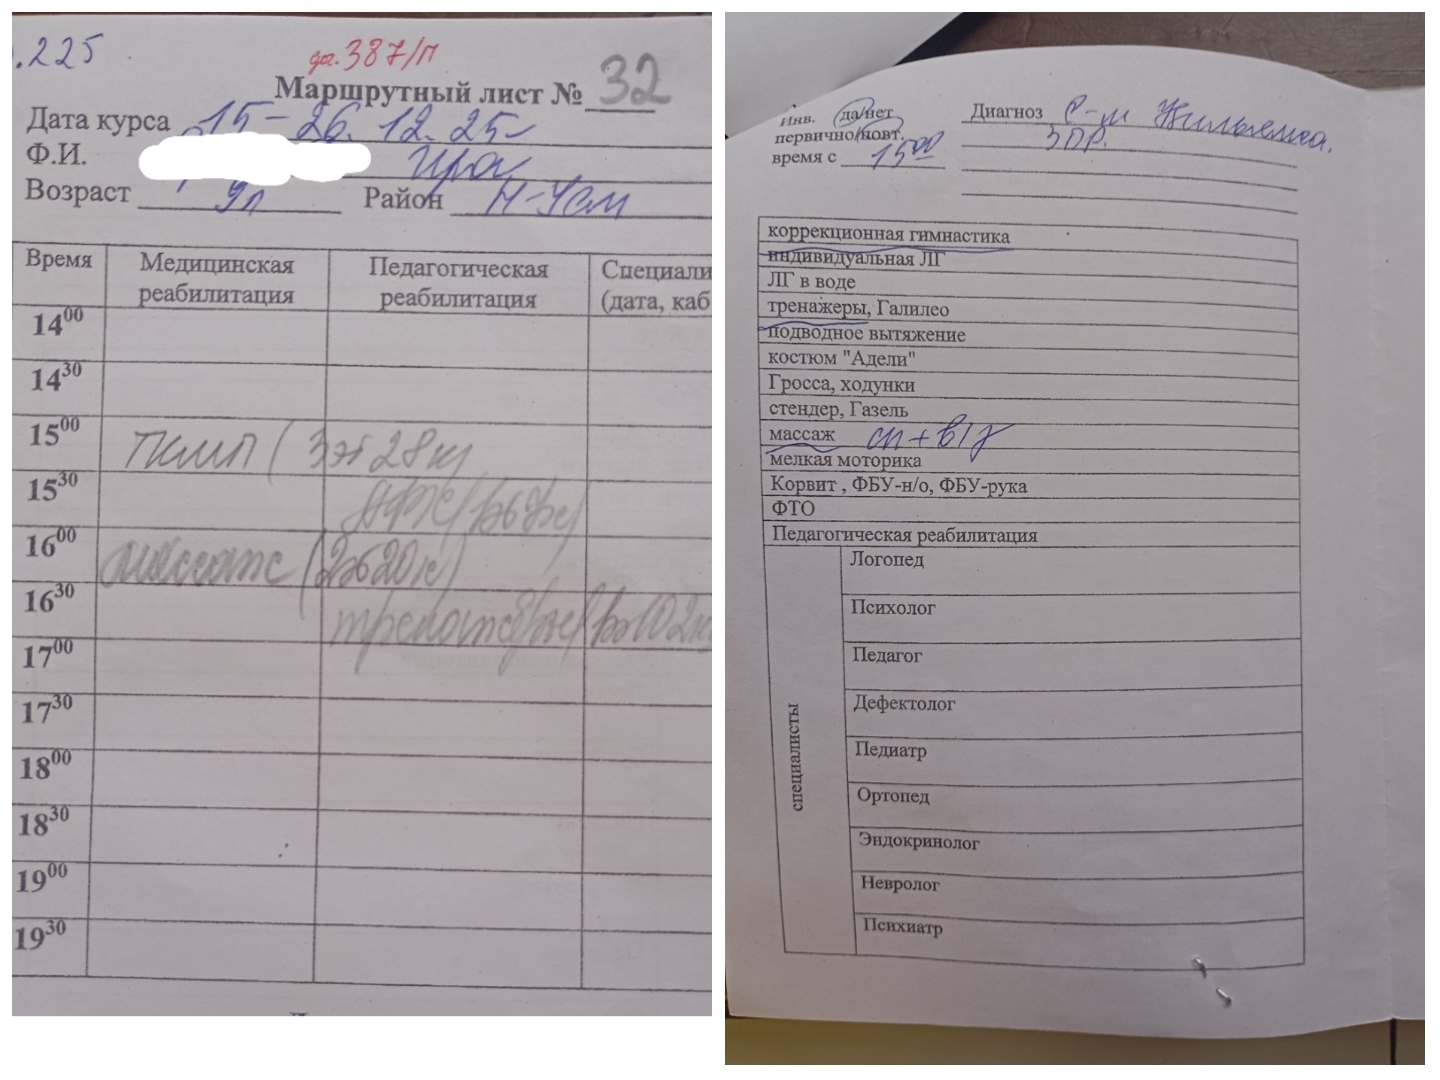 .225
дог. 387/П
Маршрутный лист № 32
Дата курса 15 – 26. 12. 25
Ф.И. Ира
Возраст 9л Район Н-Усм
Время Медицинская реабилитация Педагогическая реабилитация Специали (дата, каб
14 00
14 30
15 00
(3эт 28к)
15 30
16 00
массаж (2эт 20к)
16 30
тренажеры
17 00
17 30
18 00
18 30
19 00
19 30
Инв. да/нет
первично/повт.
время с 15 00
Диагноз С-м Вильямса.
ЗПР.
коррекционная гимнастика
индивидуальная ЛГ
ЛГ в воде
тренажеры, Галилео
подводное вытяжение
костюм "Адели"
Гросса, ходунки
стендер, Газель
массаж сп+в/г
мелкая моторика
Корвит , ФБУ-н/о, ФБУ-рука
ФТО
Педагогическая реабилитация
специалисты
Логопед
Психолог
Педагог
Дефектолог
Педиатр
Ортопед
Эндокринолог
Невролог
Психиатр